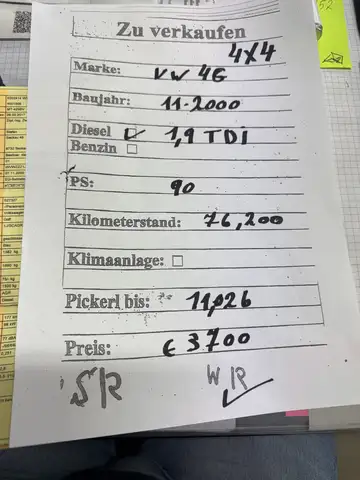 Zu verkaufen
4x4
Marke: VW 4G
Baujahr: 11-2000
Diesel ☑ 1,9 TDI
Benzin ☐
PS: 90
Kilometerstand: 76,200
Klimaanlage: ☐
Pickerl bis: 11,026
Preis: € 3700
SR WR ✓